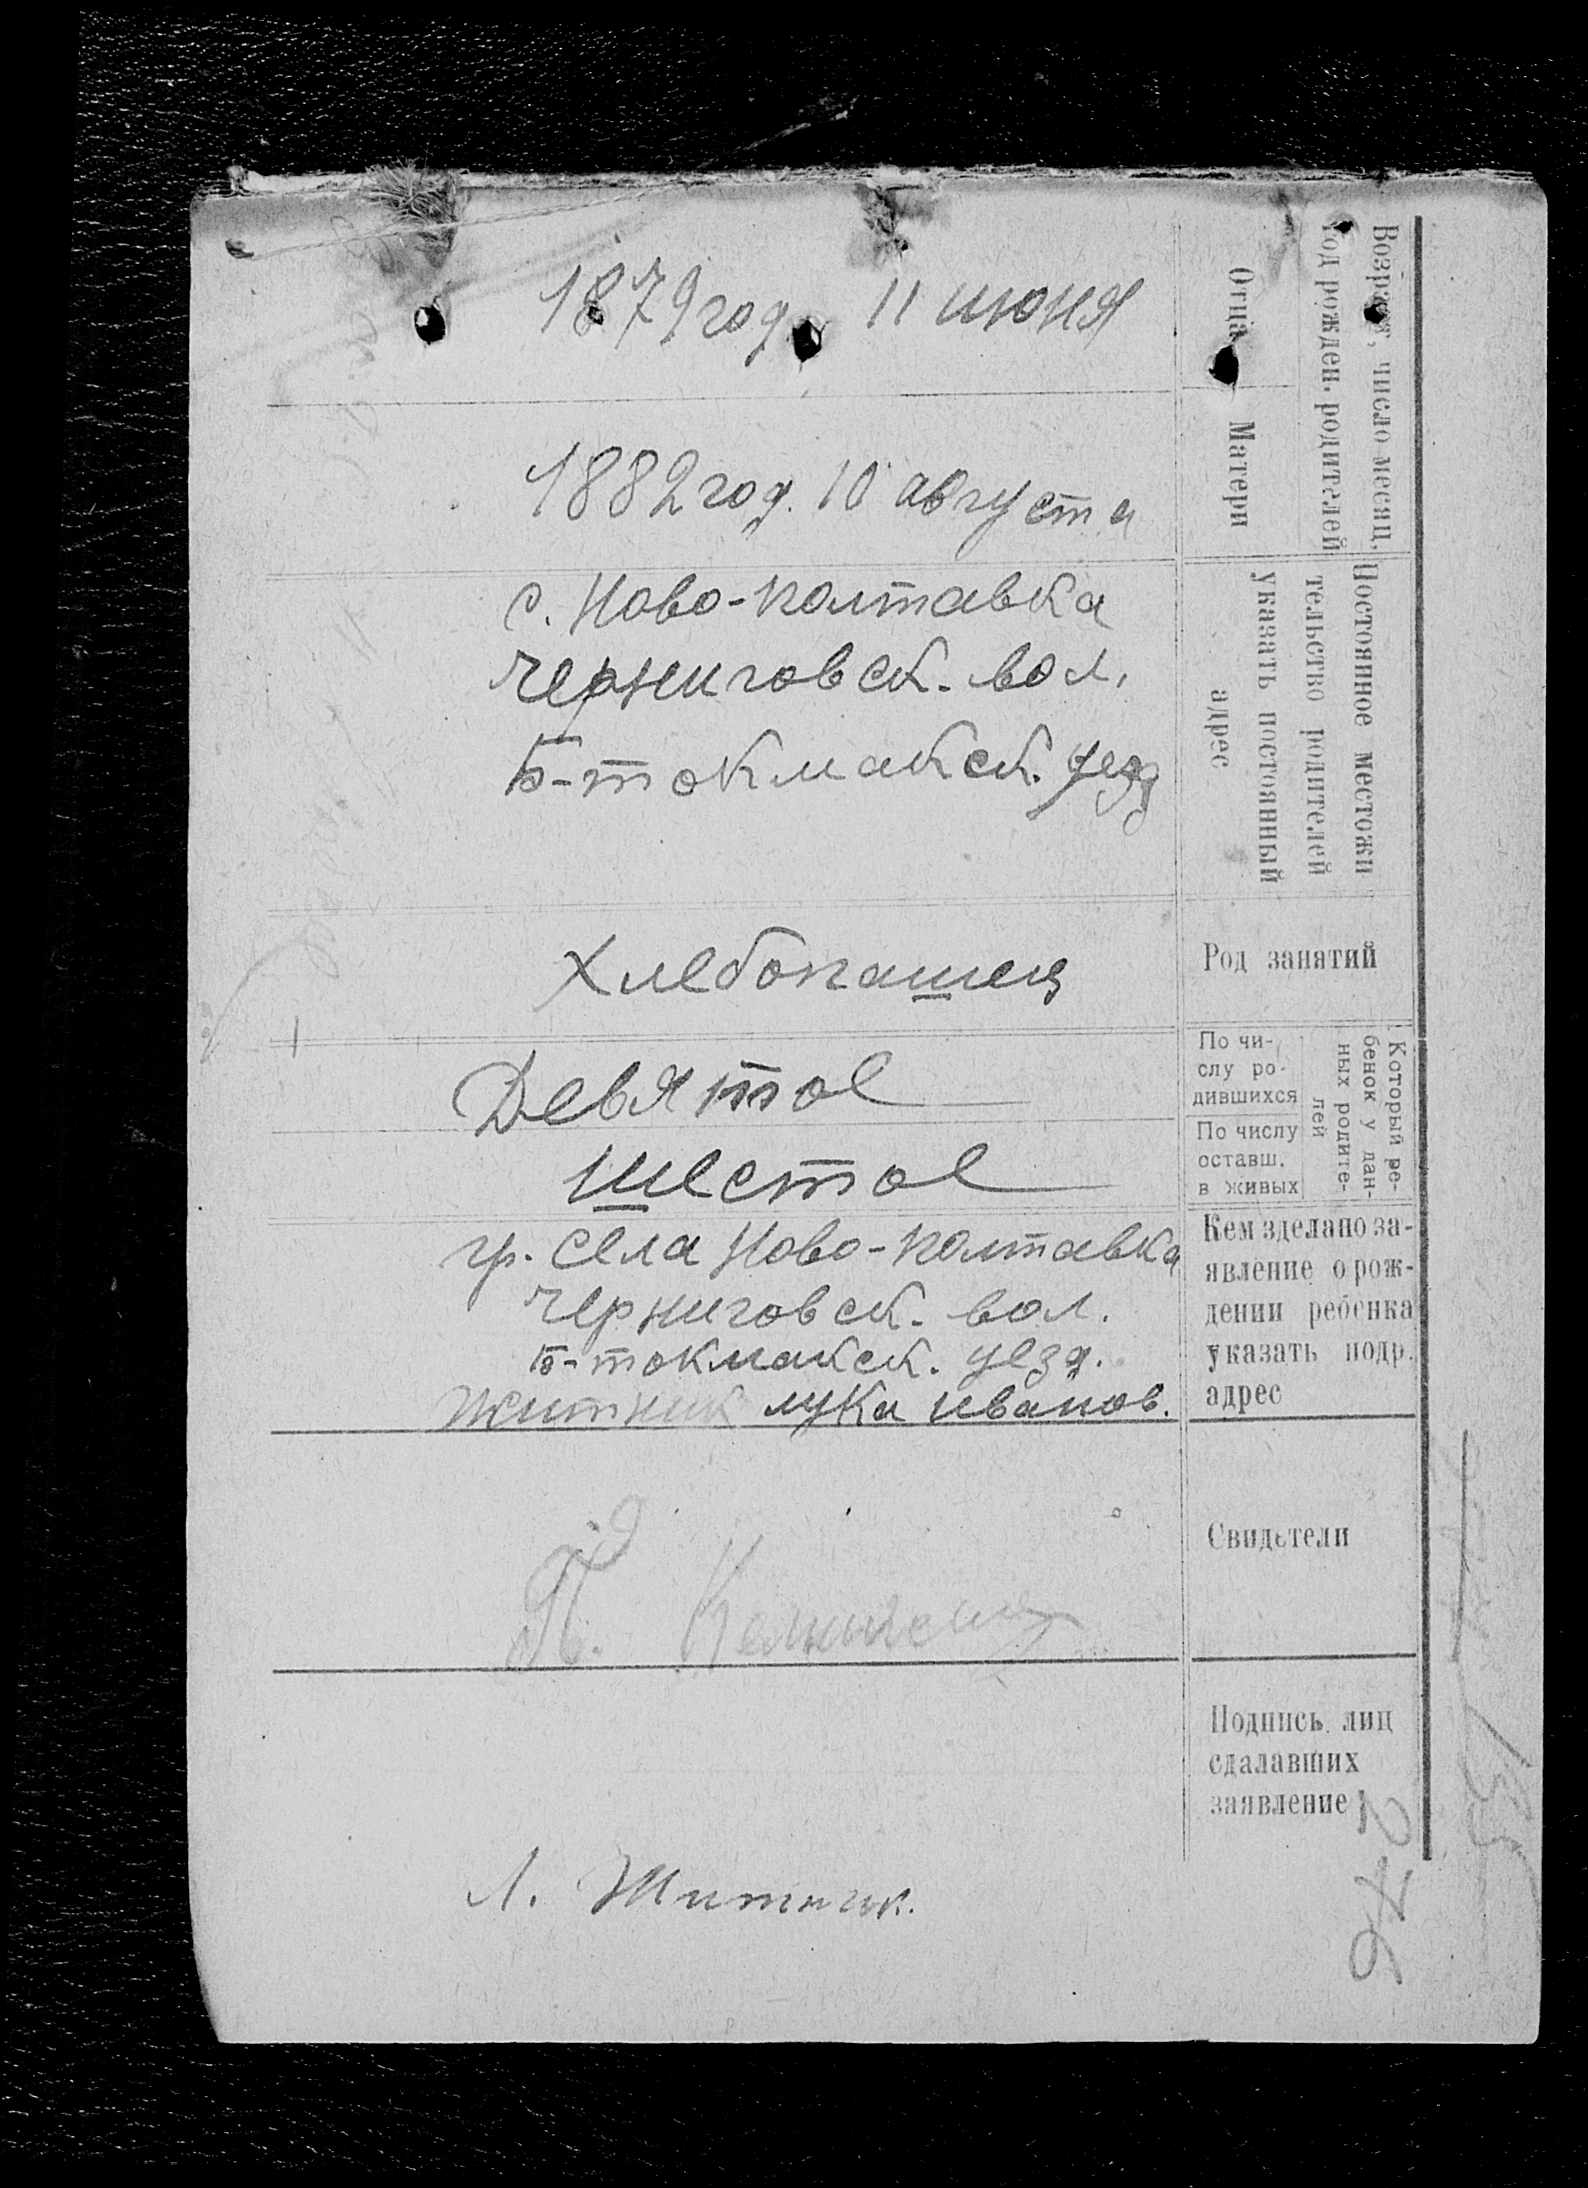 Возраст, число месяц,
год рожден. родителей
Отца
1879 год. 11 июня
Матери
1882 год. 10 августа
Постоянное местожи
тельство родителей
указать постоянный
адрес
с. Ново-полтавка
черниговск. вол.
Б-токмакск. уезд
Род занятий
хлебопашец
Который ре-
бенок у дан-
ных родите-
лей
По чи-
слу ро-
дившихся
Девятое
По числу
оставш.
в живых
шестое
Кем зделано за-
явление о рож-
дении ребенка
указать подр.
адрес
гр. села Ново-полтавка
черниговск. вол.
Б-токмакск. уезд.
Житник лука иванов.
Свидетели
П.
Подпись лиц
сдалавших
заявление
Л. Житник.
246
135